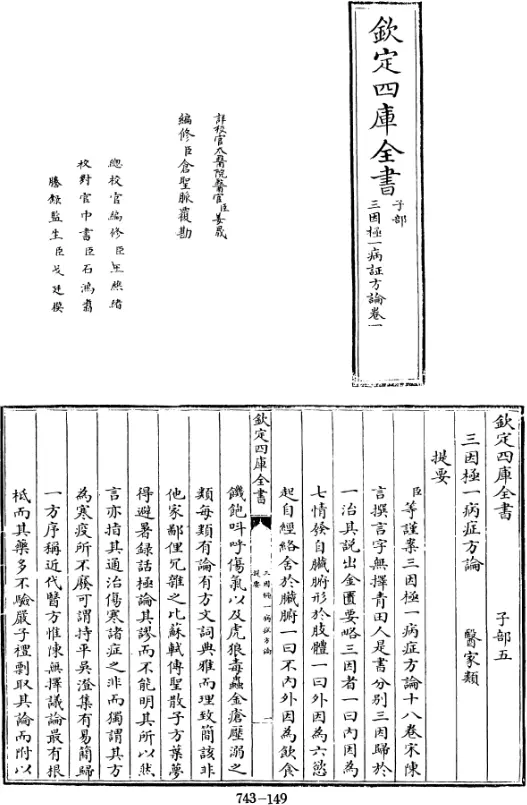 欽定四庫全書
子部
三因極一病証方論卷一
詳校官太醫院醫官臣姜晟
編修臣倉聖脈覆勘
總校官編修臣王燕緒
校對官中書臣石鴻翥
謄錄監生臣戈廷模
欽定四庫全書
子部五
三因極一病症方論
醫家類
提要
臣等謹案三因極一病症方論十八卷宋陳
言撰言字無擇青田人是書分别三因歸於
一治其説出金匱要略三因者一曰内因為
七情發自臟腑形於肢體一曰外因為六慾
起自經絡舍於臟腑一曰不内外因為飲食
欽定四庫全書
三因極一病症方論
提要
一
饑飽呌呼傷氣以及虎狼毒蟲金瘡壓溺之
類每類有論有方文詞典雅而理致簡該非
他家鄙俚冗雜之比蘇軾傳聖散子方葉夢
得避暑録話極論其謬而不能明其所以然
言亦指其通治傷寒諸症之非而獨謂其方
為寒疫所不廢可謂持平吳澄集有易簡歸
一方序稱近代醫方惟陳無擇議論最有根
柢而其藥多不驗嚴子禮剽取其論而附以
743-149